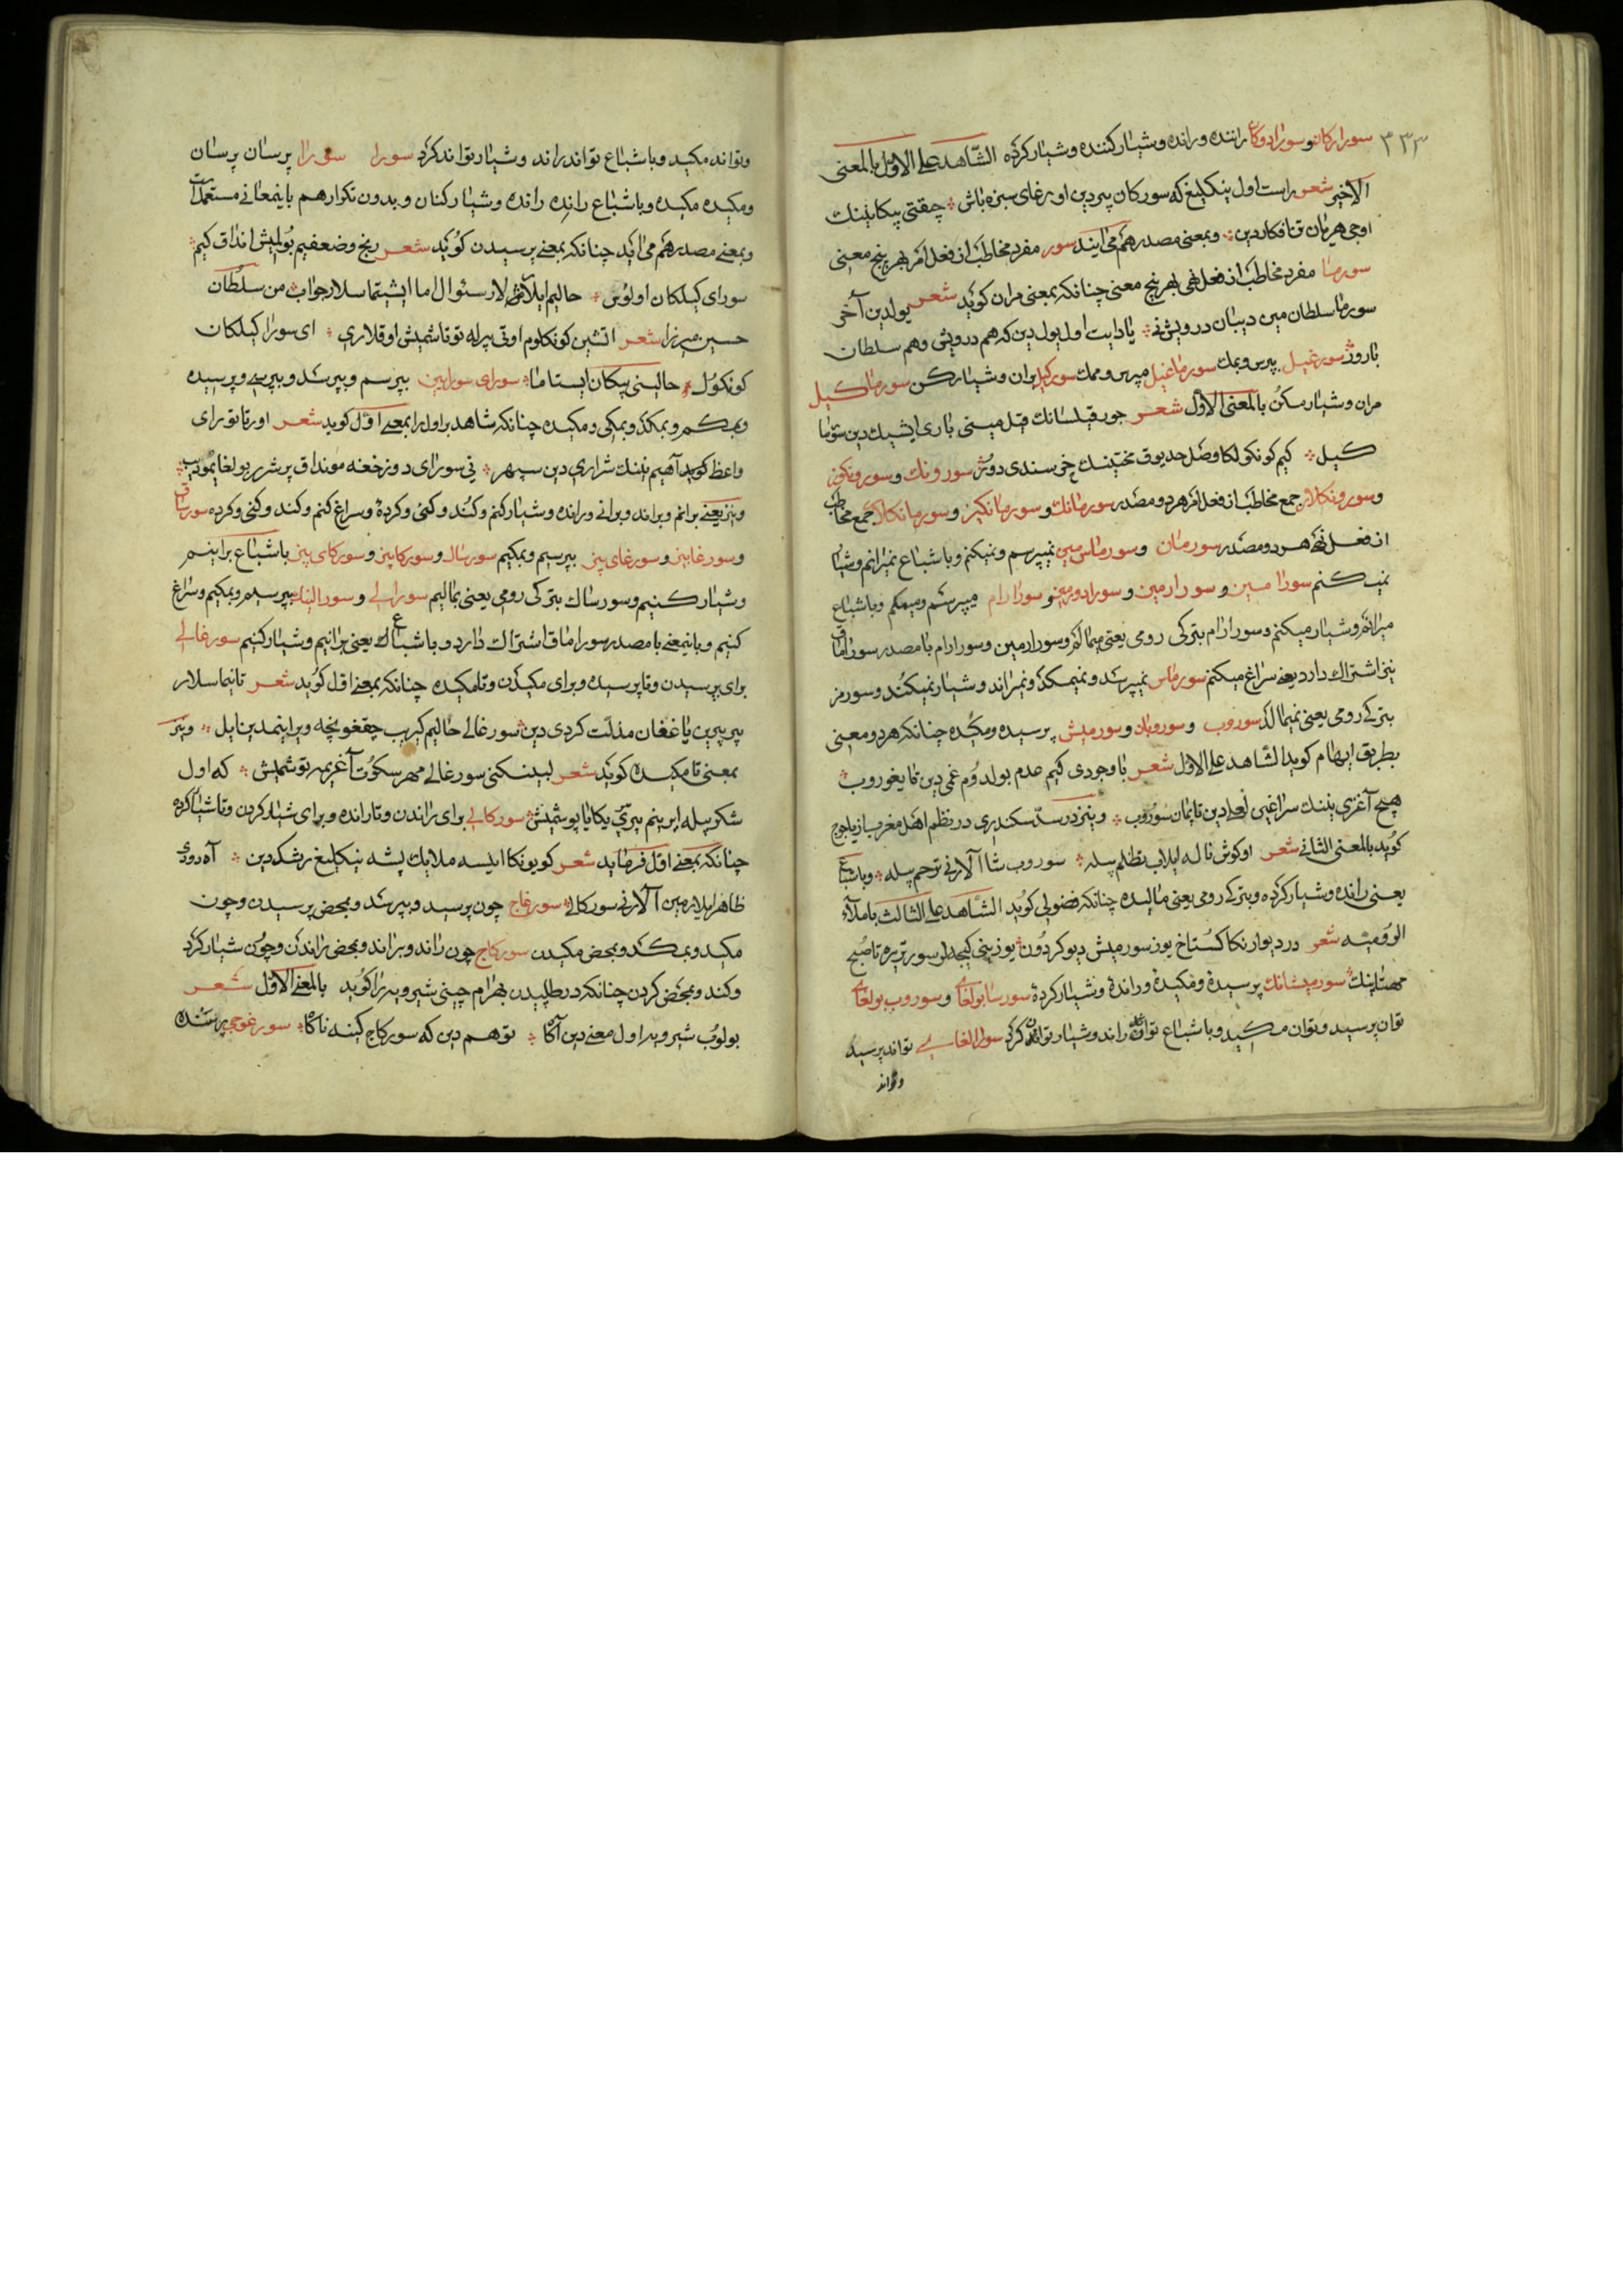 ۳۳۳
سورارکان و سورادوکان راننده و رانده و شیار کننده و شیار کرده الشاهد علی الاول بالمعنی
الاخیر شعر راست اول ینکلیغ که سورکان یردین اورغای سبزه باش چیقتی پیکانینک
اوجی هر یان تنافکاردین و بمعنی مصدر هم می آیند سور مفرد مخاطب از فعل امر بهر پنج معنی
سورما مفرد مخاطب از فعل نهی بهر پنج معنی چنانکه بمعنی مران کوید شعر یولدین آخر
سورما سلطان مین دیبان درویش نی یا دایت اول یولدین که هم درویش و هم سلطان
باروژ سورغیل بپرس و بمک سورماغیل مپرس و ممک سورکیل بران و شیار کن سورماکیل
مران و شیار مکن بالمعنی الاول شعر جور قیلسانک قیل مینی باری ایشیک دین سورما
کیل کیم کونکولکا وصل حد یوق محنتینک خرسندی دور سورونک و سورونکیز
و سورونکلار جمع مخاطب از فعل امر هر دو مصدر سورمانک و سورمانکیز و سورمانکلار جمع مخاطب
از فعل نهی هر دو مصدر سورمان و سورماس مین نمیپرسم و نمیکنم و باشباع نمیرانم و شیار
نمیکنم سورامین و سورارمین و سورادورمین و سورارام میپرسم و میمکم و باشباع
میرانم و شیار میکنم و سورارام بترکی رومی یعنی میمالم و سورارمین و سورارام با مصدر سوراماق
نیز اشتراک دارد یعنی سراغ میکنم سورماس نمیپرسد و نمیمکد و نمیراند و شیار نمیکند و سورمز
بترکی رومی یعنی نمیمالد سوروب و سوروبان و سورمیش پرسیده و مکیده چنانکه هر دو معنی
بطریق ابهام کوید الشاهد علی الاول شعر با وجودی کیم عدم بولدوم غمی دین تا یغوروب
هیچ آغزی نینک سراغین لعلی دین تاپمان سوروب و نیز در سد سکندری در نظم اهل مغرب از یاجوج
کوید بالمعنی الثانی شعر اوکوش ناله ایلاب تظلم بیله سوروب شا آلارنی ترحم بیله و باشباع
یعنی رانده و شیار کرده و بترکی رومی یعنی مالیده چنانکه فضولی کوید الشاهد علی الثالث باملاء
الرومیه شعر در دیوارنکا کستاخ یوز سورمیش دیو کردون یوزینی کیجه لر سورتیره تا صبح
مهتابنک سورمیشانک پرسیده و مکیده و رانده و شیار کرده سورسا بولغای و سوروب بولغای
توان پرسید و توان مکید و باشباع توان راند و شیار توان کرد سورا الغای تواند پرسید
و تواند
و تواند مکید و باشباع تواند راند و شیار تواند کرد سورا سورا پرسان پرسان
و مکیده مکیده و باشباع رانده رانده و شیار کنان و بدون تکرار هم باین معانی مستعملات
و بمعنی مصدر هم می آید چنانکه بمعنی پرسیدن کوید شعر رنج و ضعفیم بولمیش انداق کیم
سورای کیلکان اولوس حالیم ایلارلار سئوال اما ایشیتماسلار جواب من سلطان
حسین میرزا شعر آتشین کونکلوم اوتی بیرله توتاشمیش اوقلاری ای سورار کیلکان
کونکول حالینی پیکان ایستاما سورای سورایین بپرسم و بپرسد و بپرسی و پرسیده
و بمکم و بمکد و بمکی و مکیده چنانکه شاهد بر اول را بمعنی اول کوید شعر اورتا تورای
واعظ کوبد آهیم نینک شراری دین سپهر نی سورای دوزخغه مونداق پر شرر بولغایمودیب
و نیز یعنی برانم و براند و برانی و رانده و شیار کنم و کند و کنی و کرده و سراغ کنم و کند و کنی و کرده سورساق
و سورغابیز و سورغای بیز بپرسیم و بمکیم سورسال و سورکابیز و سورکای بیز باشباع برانیم
و شیار کنیم و سورساک بترکی رومی یعنی بمالیم سورالی و سورالینک بپرسیم و بمکیم و سراغ
کنیم و باینمعنی با مصدر سوراماق اشتراک دارد و باشباع یعنی برانیم و شیار کنیم سورغالی
برای پرسیدن و تا پرسیده و برای مکیدن و تا مکیده چنانکه بمعنی اول کوید شعر تانیماسلار
بیر بیرین یاغغان مذلت کردی دین سورغالی حالیم کیریب چیقغونچه ویرانیمدین ایل و نیز
بمعنی تا مکیده کوید شعر لبینکنی سورغالی مهر سکوت آغزیمه توشمیش که اول
شکر بیله ایرینم بیری بیکا یاپوشمیش سورکالی برای راندن و تا رانده و برای شیار کردن و تا شیار کرده
چنانکه بمعنی اول فرماید شعر کویونکا ایلسه ملایک پشه ینکلیغ رشکدین آه دودی
ظاهر ایلارمین آلارنی سورکالی سورغاج چون پرسید و بپرسد و بمحض پرسیدن و چون
مکید و بمکد و بمحض مکیدن سورکاج چون راند و براند و بمحض راندن و چون شیار کرد
و کند و بمحض کردن چنانکه در طلبیدن بهرام چینی شیرویه را کوید بالمعنی الاول شعر
بولوب شیرویه اول معنی دین آکاه توهم دین که سورکاج کینه ناکاه سورغوچی پرسنده